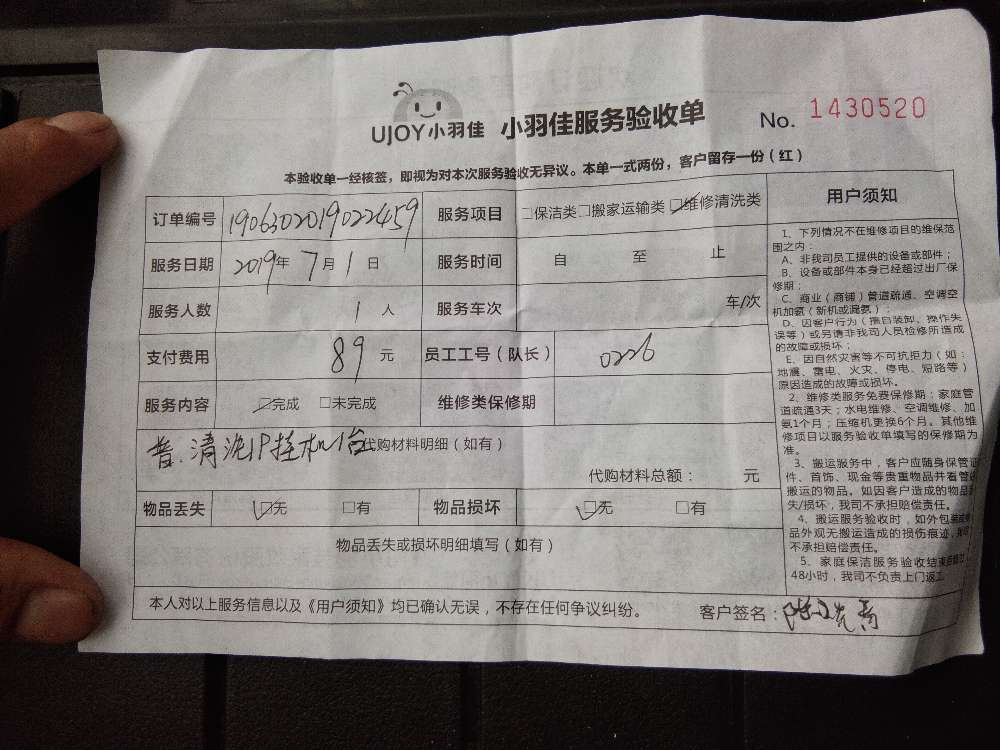 UJOY小羽佳 小羽佳服务验收单 No. 1430520
本验收单一经核签，即视为对本次服务验收无异议。本单一式两份，客户留存一份（红）
订单编号 1906302019022459 服务项目 □保洁类□搬家运输类☑维修清洗类
服务日期 2019年 7月 1日 服务时间 自 至 止
服务人数 1 人 服务车次 车/次
支付费用 89 元 员工工号（队长） 0226
服务内容 ☑完成 □未完成 维修类保修期
普.清洗1P挂机1台 代购材料明细（如有）
代购材料总额： 元
物品丢失 ☑无 □有 物品损坏 ☑无 □有
物品丢失或损坏明细填写（如有）
本人对以上服务信息以及《用户须知》均已确认无误，不存在任何争议纠纷。 客户签名：
用户须知
1、下列情况不在维修项目的维保范
围之内：
A、非我司员工提供的设备或部件；
B、设备或部件本身已经超过出厂保
修期；
C、商业（商铺）管道疏通、空调空
机加氨（新机或漏氨）；
D、因客户行为（擅自装卸、操作失
误等）或另请非我司人员检修所造成
的故障或损坏；
E、因自然灾害等不可抗拒力（如：
地震、雷电、火灾、停电、短路等）
原因造成的故障或损坏。
2、维修类服务免费保修期：家庭管
道疏通3天；水电维修、空调维修、加
氨1个月；压缩机更换6个月。其他维
修项目以服务验收单填写的保修期为
准。
3、搬运服务中，客户应随身保管证
件、首饰、现金等贵重物品并看管
搬运的物品。如因客户造成的物品
失/损坏，我司不承担赔偿责任。
4、搬运服务验收时，如外包装
品外观无搬运造成的损伤痕迹，
不承担赔偿责任。
5、家庭保洁服务验收结束
48小时，我司不负责上门返工。